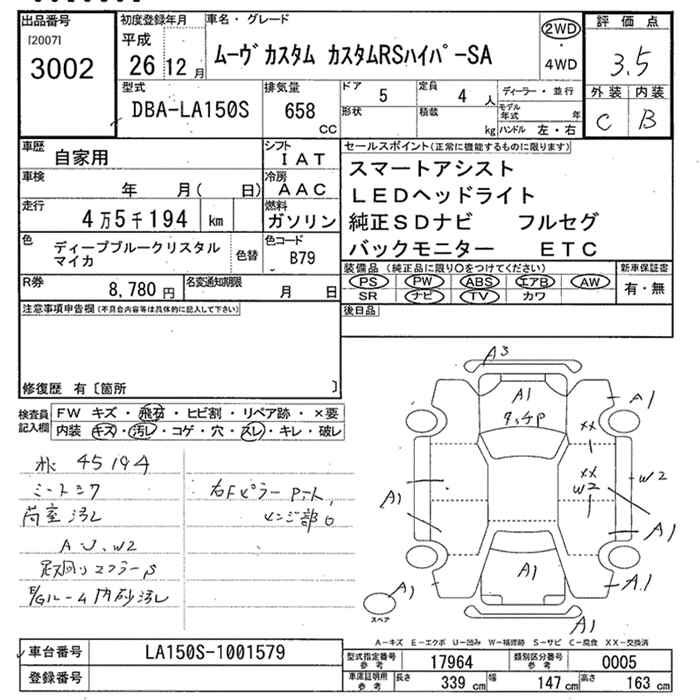 出品番号
[2007]
3002
初度登録年月
平成
26 12 月
車名・グレード
ムーヴ カスタム カスタムRSハイパーSA
2WD
・
4WD
評価点
3.5
外装 内装
C B
型式
DBA-LA150S
排気量
658
cc
ドア 5
定員 4 人
形状
積載 kg
ディーラー・並行
モデル年式 年
ハンドル 左・右
車歴
自家用
シフト
IAT
車検
年 月( 日)
冷房
AAC
走行
4万5千194 km
燃料
ガソリン
色
ディープブルークリスタル
マイカ
色替
色コード
B79
R券
8,780 円
名変通知期限
月 日
セールスポイント(正常に機能するものに限ります)
スマートアシスト
LEDヘッドライト
純正SDナビ フルセグ
バックモニター ETC
装備品 (純正品に限り○をつけてください)
新車保証書
PS PW ABS エアB AW
有・無
SR ナビ TV カワ
後日品
注意事項申告欄(不具合内容等は具体的に記入して下さい)
修復歴 有〔箇所 〕
検査員
記入欄
FW キズ・飛石・ヒビ割・リペア跡・×要
内装 キズ・汚レ・コゲ・穴・スレ・キレ・破レ
45194
荷室汚レ
A U、W2
右Fピラー
A3
A1
A1
XX
XX
W2
W2
A1
A1
A1
A1
A1
スペア
A-キズ E-エクボ U-凹み W-補修跡 S-サビ C-腐食 XX-交換済
車台番号
LA150S-1001579
登録番号
型式指定番号
参考
17964
類別区分番号
参考
0005
車庫証明所
参考
長さ 339 cm
幅 147 cm
高さ 163 cm